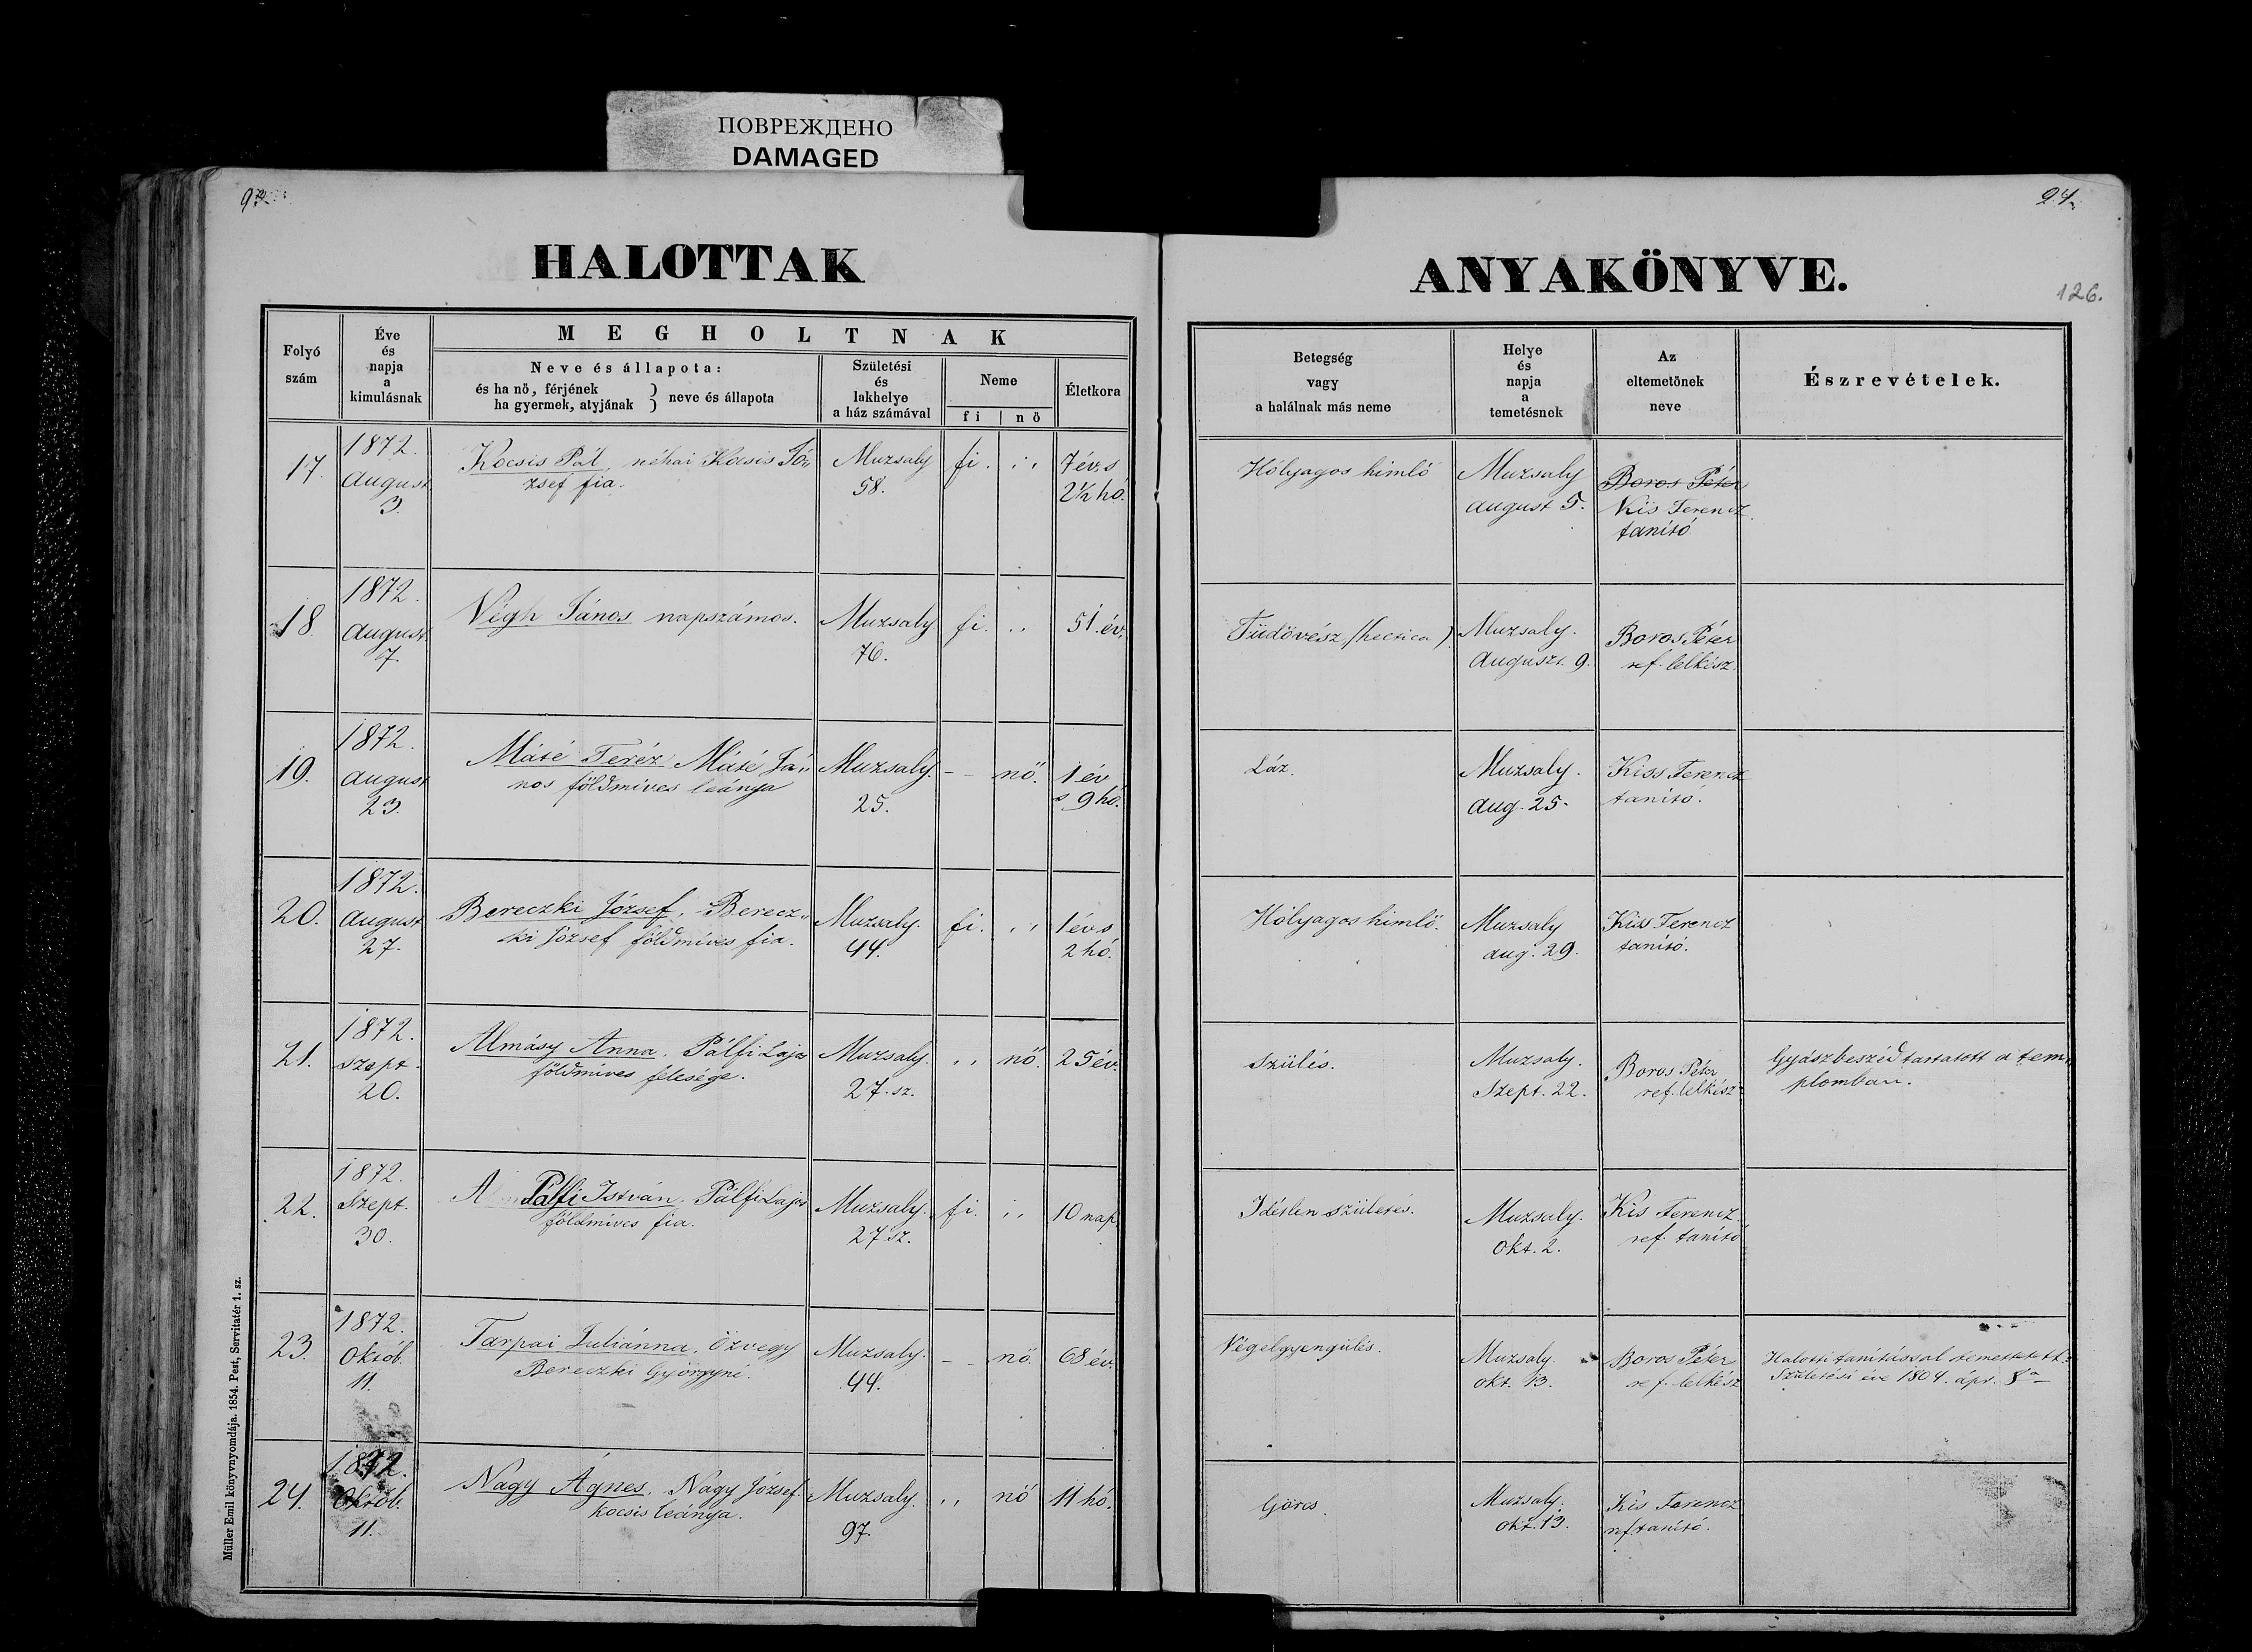 ПОВРЕЖДЕНО
DAMAGED
94.
126.
HALOTTAK
ANYAKÖNYVE.
Folyó
szám
Éve
és
napja
a
kimulásnak
MEGHOLTNAK
Neve és állapota:
és ha nö, férjének
ha gyermek, atyjának
} neve és állapota
Születési
és
lakhelye
a ház számával
Neme
fi | nö
Életkora
Betegség
vagy
a halálnak más neme
Helye
és
napja
a
temetésnek
Az
eltemetönek
neve
Észrevételek.
17.
1872.
August
3.
Kocsis Pál, néhai Kocsis Jó„
zsef fia.
Muzsaly
58.
fi.
7 év s
2½ hó.
Hólyagos himlö
Muzsaly
august 5.
Boros Péter
Kis Ferencz
tanító
18.
1872.
August
7.
Végh János napszámos.
Muzsaly
76.
fi.
51. év.
Tüdövész (hectica)
Muzsaly.
August. 9.
Boros Péter
ref. lelkész.
19.
1872.
August
23.
Máté Teréz, Máté Já„
nos földmíves leánya
Muzsaly.
25.
nö.
1 év
s 9 hó.
Láz.
Muzsaly.
Aug. 25.
Kiss Ferencz
tanító.
20.
1872.
August
27.
Bereczki József, Berecz„
ki József földmíves fia.
Muzsaly.
44.
fi.
1 év s
2 hó.
Hólyagos himlö.
Muzsaly
aug. 29.
Kiss Ferencz
tanító.
21.
1872.
Szept.
20.
Almásy Anna. Pálfi Lajos
földmíves felesége.
Muzsaly.
27. sz.
nö.
25 év.
Szülés.
Muzsaly.
Szept. 22.
Boros Péter
ref. lelkész
Gyászbeszéd tartatott a tem„
plomban.
22.
1872.
Szept.
30.
Pálfi István. Pálfi Lajos
földmíves fia.
Muzsaly.
27 sz.
fi.
10 nap.
Idétlen születés.
Muzsaly.
Okt. 2.
Kis Ferencz
ref. tanító
23.
1872.
Októb.
11.
Tarpai Juliánna. Özvegy
Bereczki Györgyné.
Muzsaly.
44.
nö.
68 év.
Végelgyengülés.
Muzsaly.
okt. 13.
Boros Péter
ref. lelkész
Halotti tanítással temettetett.
Születési éve 1804. ápr. 8ª
24.
1872.
Októb.
11.
Nagy Ágnes. Nagy József
kocsis leánya.
Muzsaly.
97.
nö
11 hó.
Görcs.
Muzsaly.
okt. 13.
Kis Ferencz
ref tanító.
Müller Emil könyvnyomdája. 1854. Pest, Servitatér 1. sz.